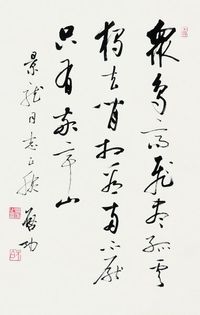 眾鳥高飛盡孤雲
獨去閒相看兩不厭
只有敬亭山
景龍同志正腕
啟功